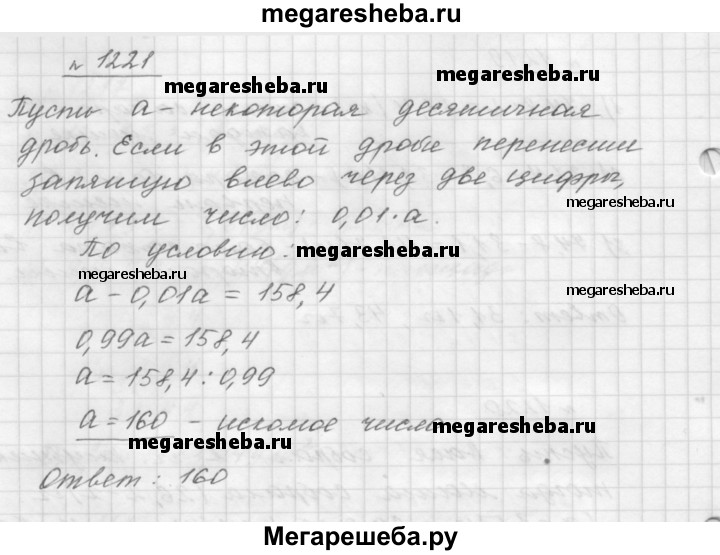 megaresheba.ru
№ 1221
megaresheba.ru
megaresheba.ru
Пусть а - некоторая десятичная
дробь. Если в этой дроби перенести
запятую влево через две цифры,
megaresheba.ru
megaresheba.ru
получим число: 0,01·а.
По условию:
megaresheba.ru
megaresheba.ru
megaresheba.ru
а - 0,01а = 158,4
0,99а = 158,4
а = 158,4 : 0,99
а = 160 - искомое число
megaresheba.ru
megaresheba.ru
Ответ: 160
Мегарешеба.ру